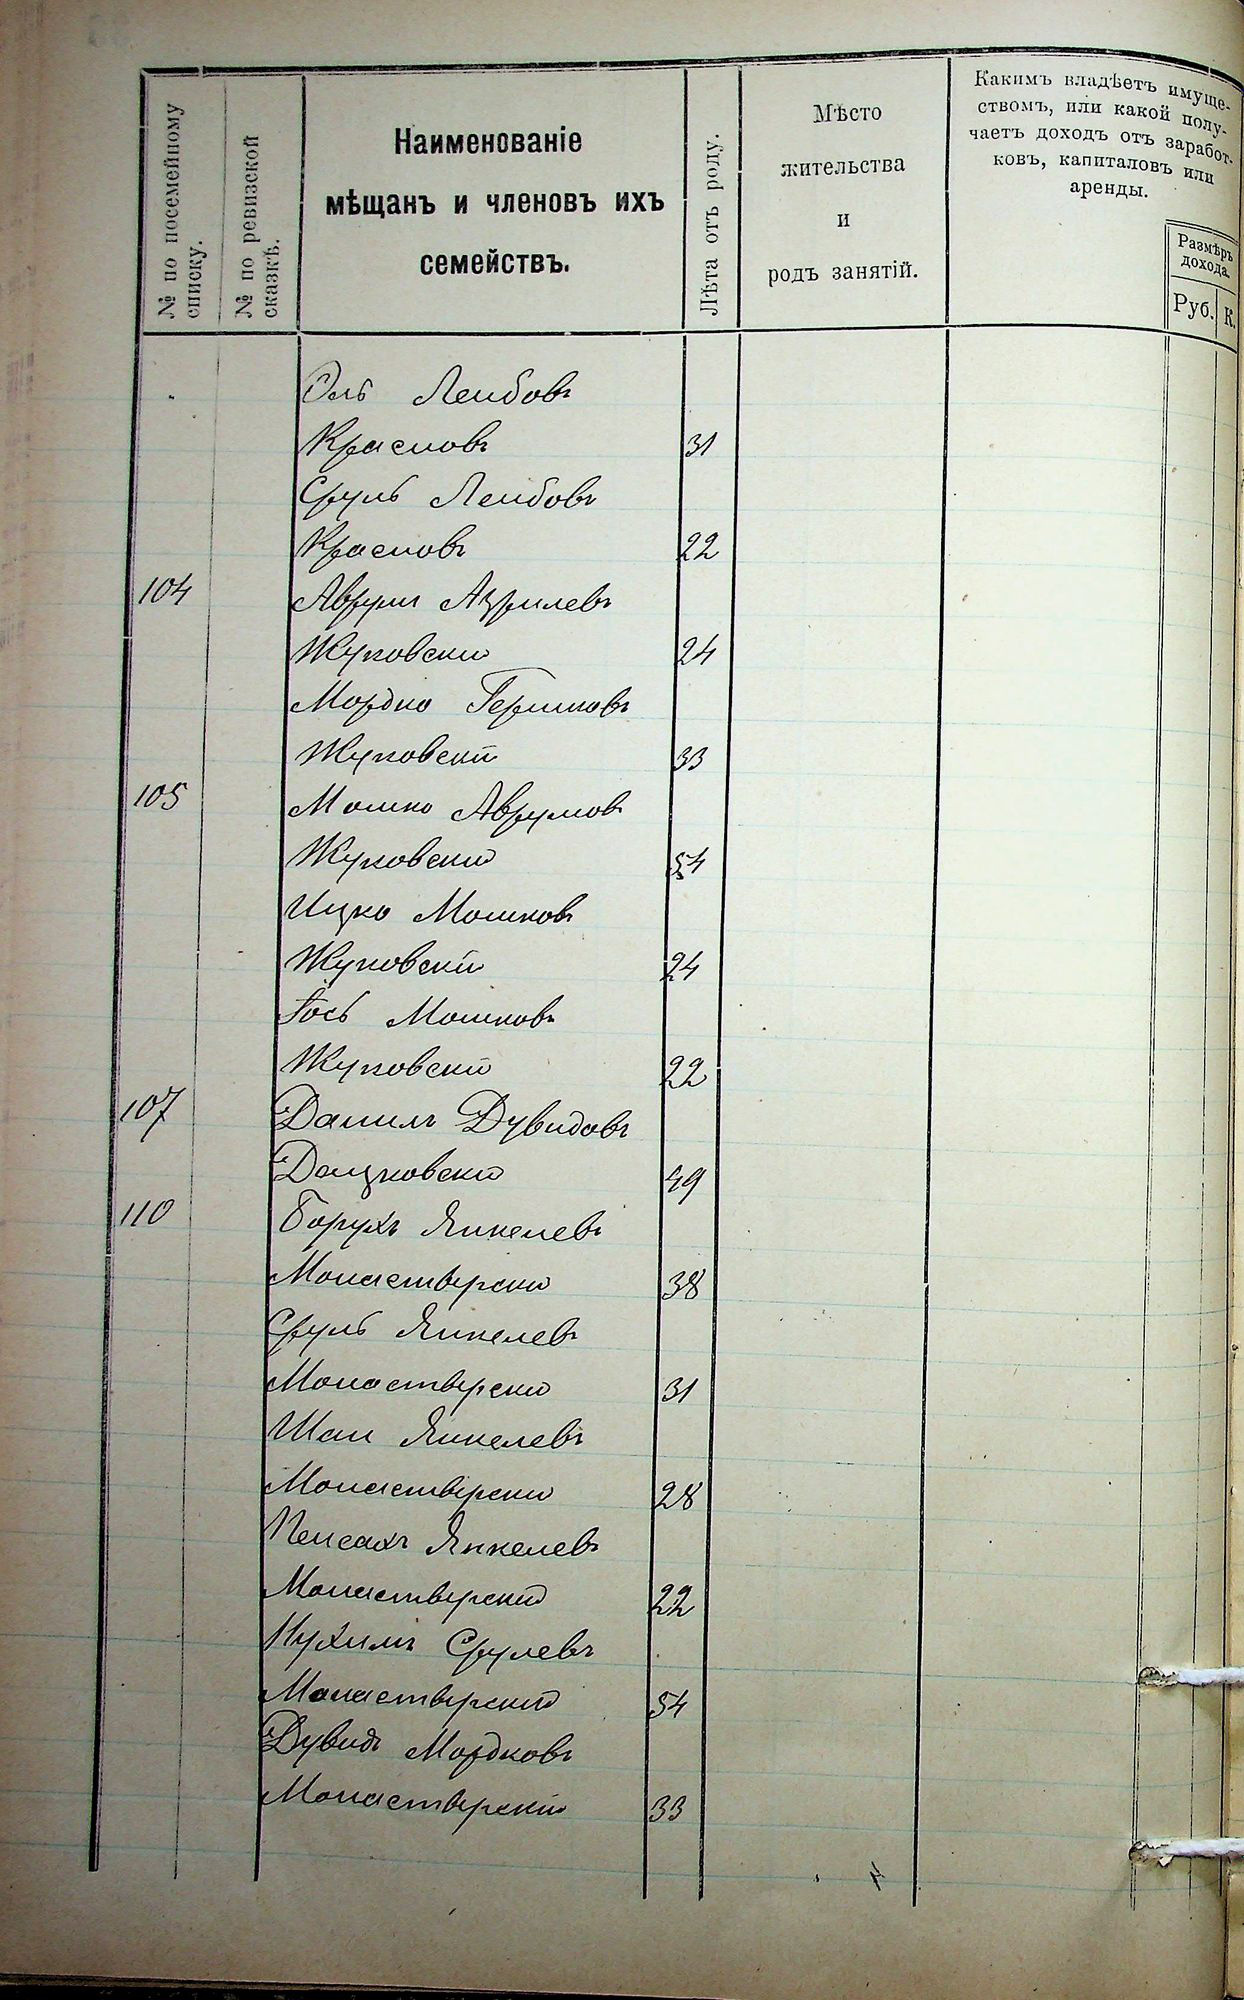 № по посемейному списку.
№ по ревизской сказкѣ.
Наименованіе
мѣщанъ и членовъ ихъ
семействъ.
Лѣта отъ роду.
Мѣсто
жительства
и
родъ занятій.
Какимъ владѣетъ имуще-
ствомъ, или какой полу-
чаетъ доходъ отъ заработ-
ковъ, капиталовъ или
аренды.
Размѣръ
дохода.
Руб. К.
Лейбовъ
Красновъ 31
Сруль Лейбовъ
Красновъ 22
104 Аврумъ Азрилевъ
Жуковскій 24
Мордко Гершковъ
Жуковскій 33
105 Мошко Аврумовъ
Жуковскій 54
Ицко Мошковъ
Жуковскій 24
Іось Мошковъ
Жуковскій 22
107 Данилъ Дувидовъ
Дацковскій 49
110 Борухъ Янкелевъ
Монастырскій 38
Сруль Янкелевъ
Монастырскій 31
Янкелевъ
Монастырскій 28
Пейсахъ Янкелевъ
Монастырскій 22
Нухимъ Срулевъ
Монастырскій 54
Дувидъ Мордковъ
Монастырскій 33